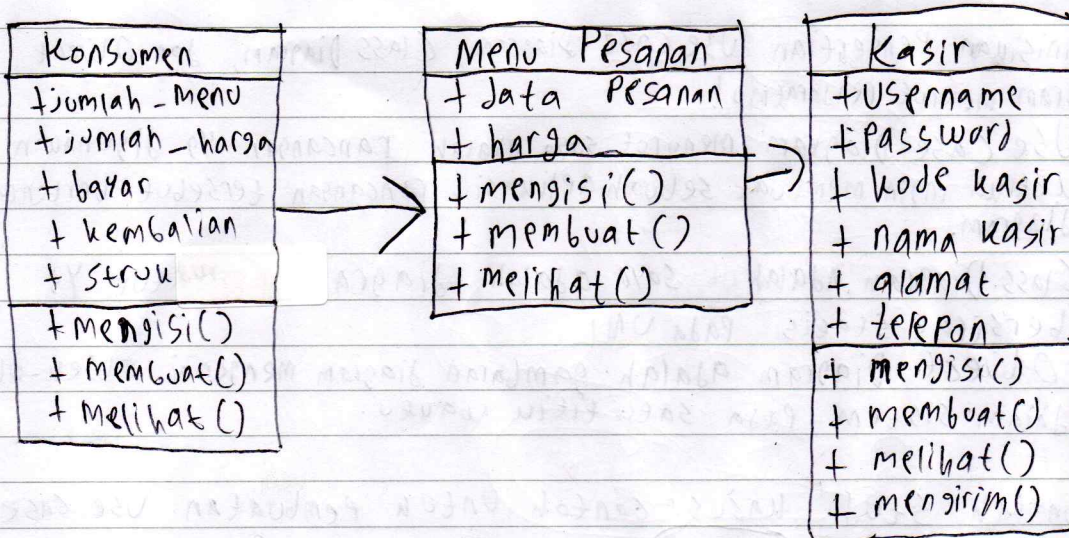 Konsumen
+jumlah_Menu
+jumlah_harga
+ bayar
+ kembalian
+ struk
+ Mengisi()
+ Membuat()
+ Melihat()
Menu Pesanan
+ data Pesanan
+ harga
+ mengisi()
+ membuat()
+ melihat()
Kasir
+ Username
+ Password
+ kode kasir
+ nama kasir
+ alamat
+ telepon
+ mengisi()
+ membuat()
+ melihat()
+ mengirim()